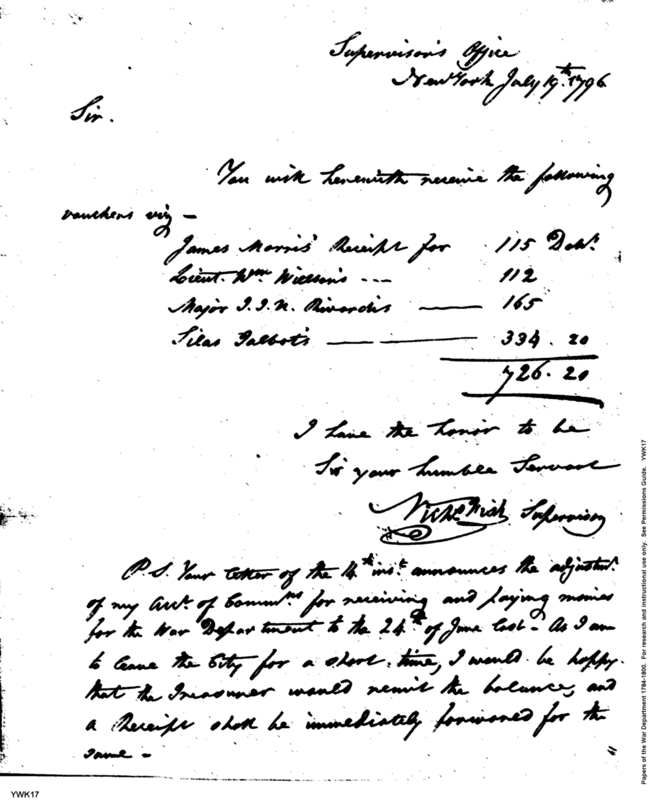 Supervisor's Office
New York July 19th. 1796
Sir.
You will herewith receive the following
vouchers viz –
James Morris' Receipt for 115 Dolrs.
Lieut. Wm Willson's --- 112
Major J. J. U. Rivardis —— 165
Silas Talbot's —— —— 334. 20
726. 20
I have the honor to be
Sir your humble Servant
Nichs Fish Supervisor
P.S. Your letter of the 14th inst. announces the adjustmt.
of my Acct. of Commns for receiving and paying monies
for the War Department to the 24th of June last – As I am
to leave the City for a short time, I would be happy
that the Treasurer would remit the balance, and
a Receipt shall be immediately forwarded for the
same –
Papers of the War Department 1784-1800. For research and instructional use only. See Permissions Guide. YWK17
YWK17